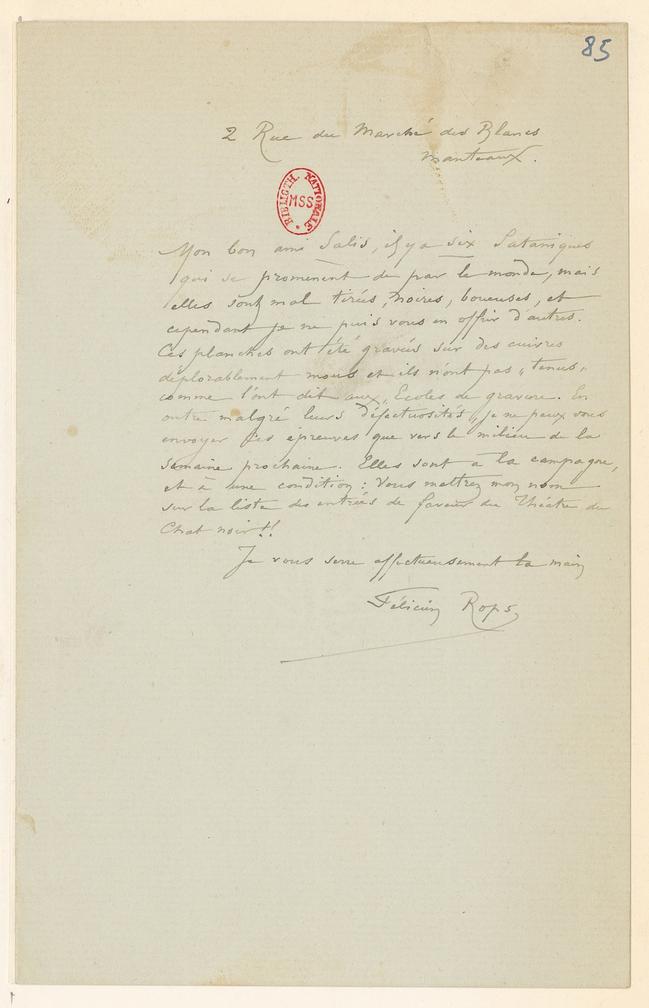 85
2 Rue du Marché des Blancs
Manteaux.
BIBLIOTH. NATIONALE
MSS
Mon bon ami Salis, il y a six Sataniques
qui se promènent de par le monde, mais
elles sont mal tirées, noires, boueuses, et
cependant je ne puis vous en offrir d'autres.
Ces planches ont été gravées sur des cuivres
déplorablement mous et ils n'ont pas „tenus„
comme l'ont dit aux „Ecoles de gravure. En
outre malgré leurs défectuosités, je ne peux vous
envoyer ces épreuves que vers le milieu de la
Semaine prochaine. Elles sont à la campagne,
et à une condition: Vous mettrez mon nom
sur la liste des entrées de faveur du Théâtre du
Chat noir!!
Je vous serre affectueusement la main
Félicien Rops